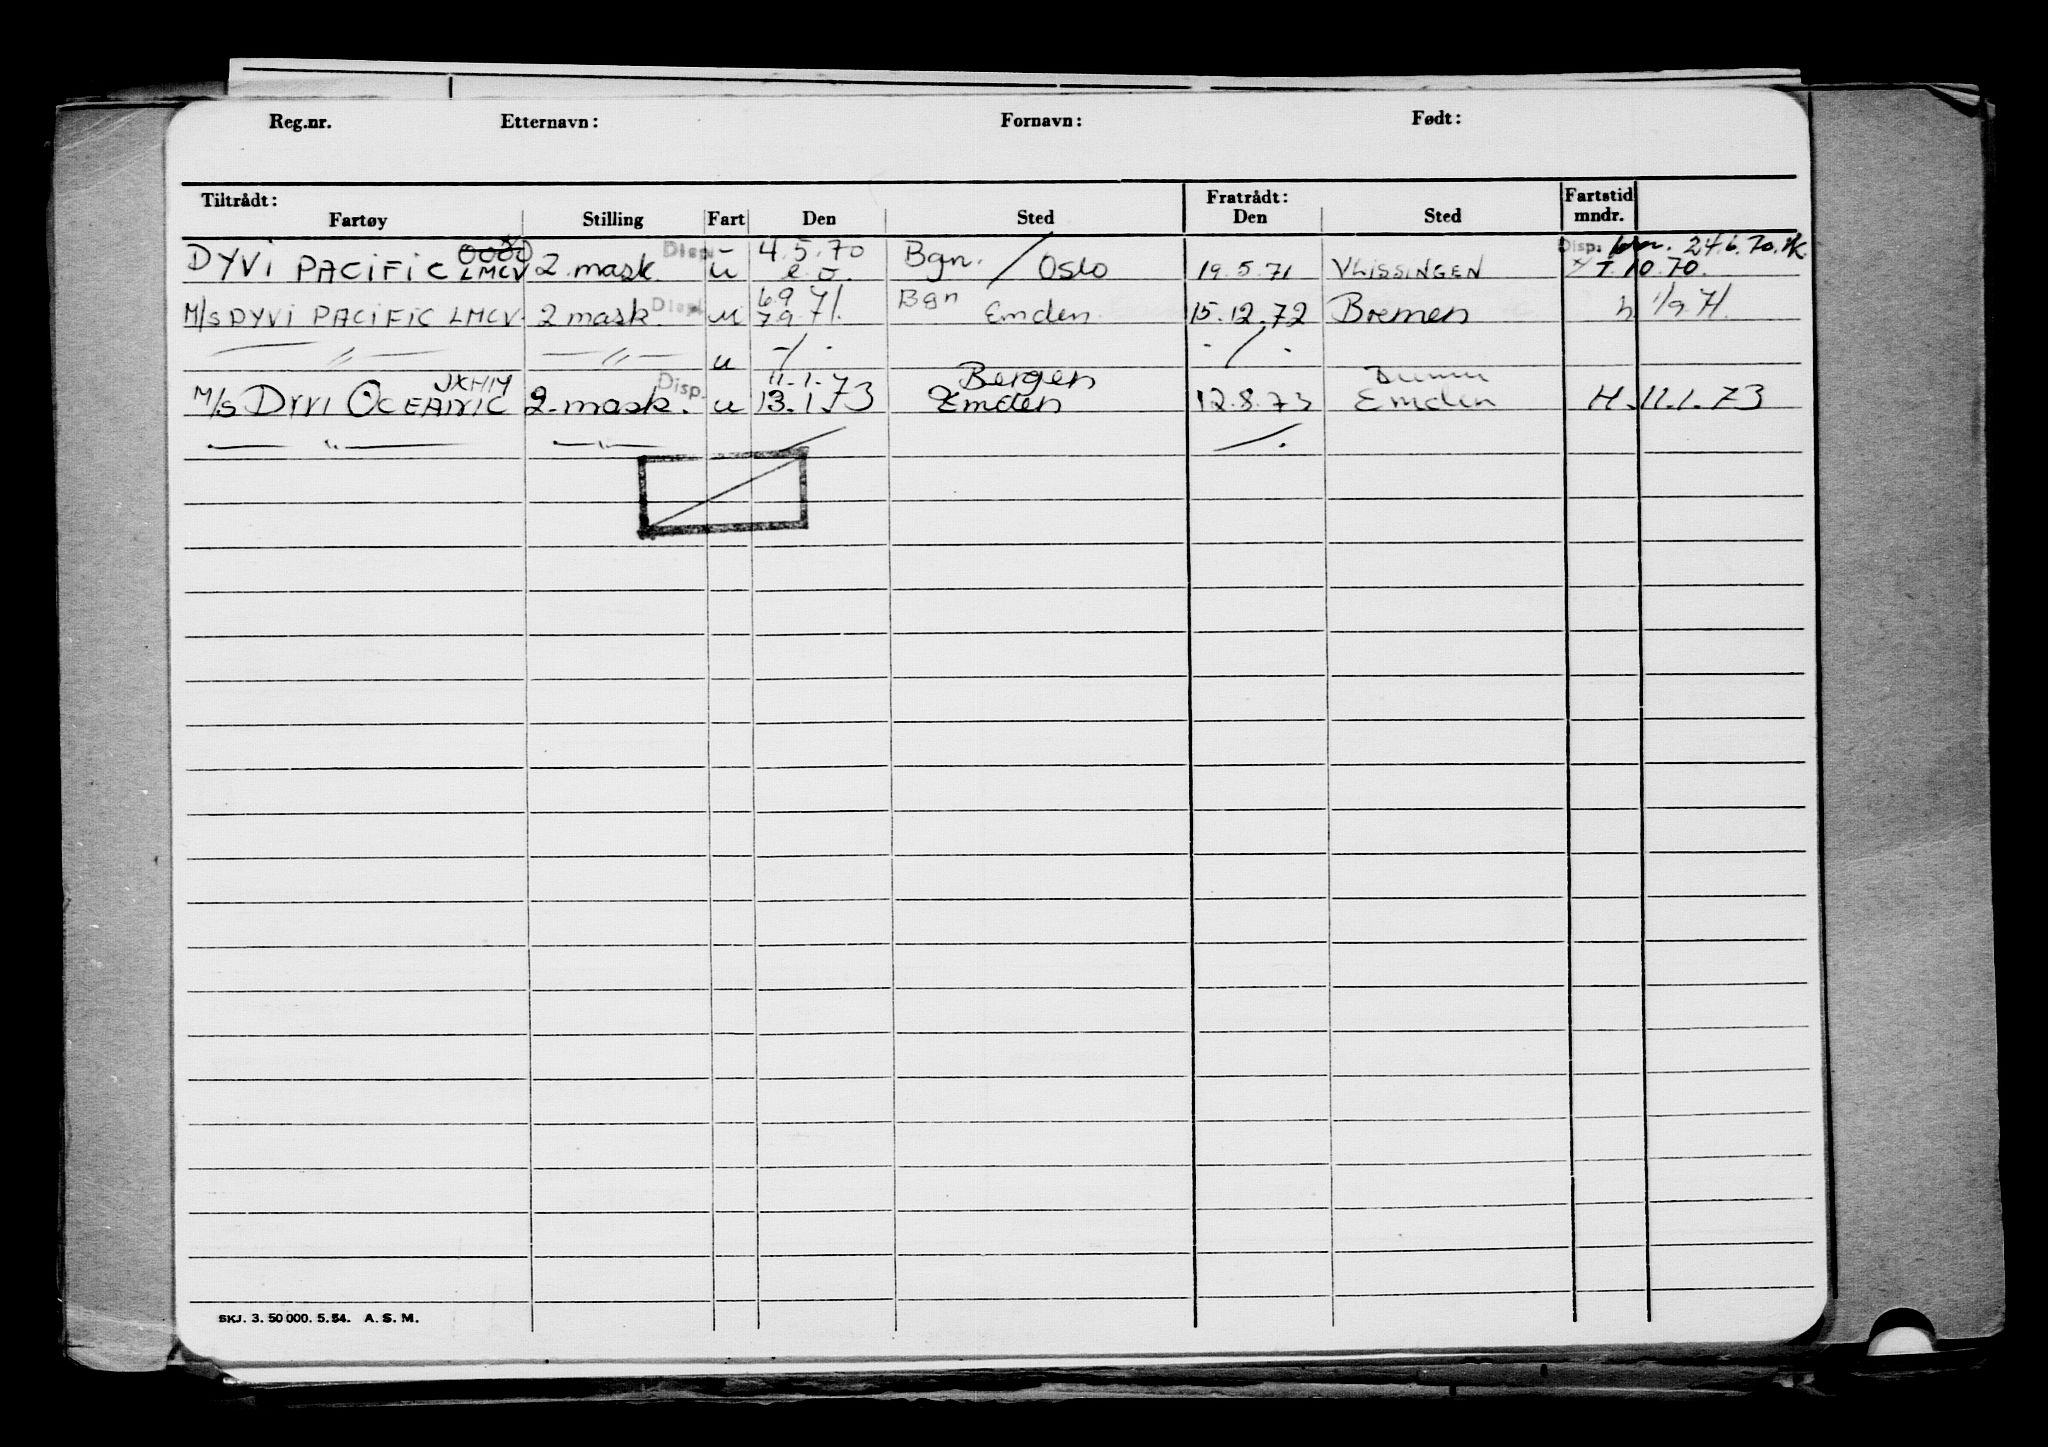 Reg.nr. Etternavn: Fornavn: Født:
Tiltrådt: Fratrådt: Fartstid
Fartøy Stilling Fart Den Sted Den Sted mndr.
DYVI PACIFIC LMCV 2 mask. Disp. u 4.5.70 Bgn. / Oslo 19.5.71 VLISSINGEN Disp. 24.6.70.
10.70.
M/S DYVI PACIFIC LMCV. 2 mask. Disp. u 6.9 7.9.71. Bgn Emden 15.12.72 Bremen h 1/9 71.
— " — — " — u -/- -/-
JXHM Disp. 11.1. Bergen
M/S DYVI OCEANIC 2. mask. u 13.1.73 Emden 12.8.73 Emden H. 11.1.73
— " — — " —
SKJ. 3. 50 000. 5. 54. A. S. M.